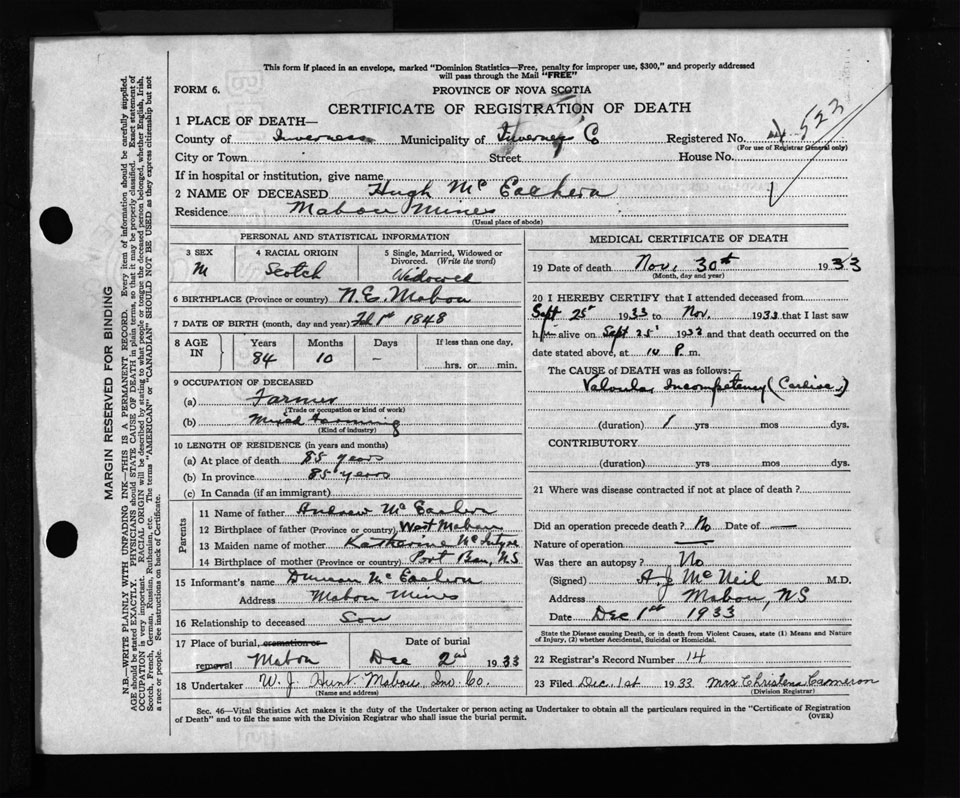 This form if placed in an envelope, marked "Dominion Statistics—Free, penalty for improper use, $300," and properly addressed
will pass through the Mail "FREE"
FORM 6.
PROVINCE OF NOVA SCOTIA
CERTIFICATE OF REGISTRATION OF DEATH
1 PLACE OF DEATH—
County of Inverness Municipality of Inverness Co Registered No. 523
(For use of Registrar General only)
City or Town Street House No.
If in hospital or institution, give name
2 NAME OF DECEASED Hugh Mc Eachern
Residence Mabou Mines
(Usual place of abode)
PERSONAL AND STATISTICAL INFORMATION
3 SEX M
4 RACIAL ORIGIN Scotch
5 Single, Married, Widowed or Divorced. (Write the word) Widowed
6 BIRTHPLACE (Province or country) N.E. Mabou
7 DATE OF BIRTH (month, day and year) Feb 1st 1848
8 AGE IN Years Months Days If less than one day,
84 10 — hrs. or min.
9 OCCUPATION OF DECEASED
(a) Farmer
(Trade or occupation or kind of work)
(b) Mixed Farming
(Kind of industry)
10 LENGTH OF RESIDENCE (in years and months)
(a) At place of death 85 years
(b) In province 85 years
(c) In Canada (if an immigrant)
Parents
11 Name of father Andrew Mc Eachern
12 Birthplace of father (Province or country) West Mabou
13 Maiden name of mother Katherine Mc Intyre
14 Birthplace of mother (Province or country) Port Ban, N.S
15 Informant's name Duncan Mc Eachern
Address Mabou Mines
16 Relationship to deceased Son
17 Place of burial, cremation or removal Mabou
Date of burial Dec 2nd 1933
18 Undertaker W. J. Hunt. Mabou Inv. Co.
(Name and address)
MEDICAL CERTIFICATE OF DEATH
19 Date of death Nov. 30th 1933
(Month, day and year)
20 I HEREBY CERTIFY that I attended deceased from
Sept 25th 1933 to Nov. 1933 that I last saw
him alive on Sept 25 1933 and that death occurred on
date stated above, at 10 P. m.
The CAUSE of DEATH was as follows:—
Valvular Incompetency (Cardiac)
(duration) 1 yrs mos dys.
CONTRIBUTORY
(duration) yrs mos dys.
21 Where was disease contracted if not at place of death?
Did an operation precede death? No Date of —
Nature of operation —
Was there an autopsy? No
(Signed) A.J Mc Neil M.D.
Address Mabou, NS
Date Dec 1st 1933
State the Disease causing Death, or in death from Violent Causes, state (1) Means and Nature
of Injury, (2) whether Accidental, Suicidal or Homicidal.
22 Registrar's Record Number 14
23 Filed Dec. 1st 1933 Mrs Christena Cameron
(Division Registrar)
Sec. 46—Vital Statistics Act makes it the duty of the Undertaker or person acting as Undertaker to obtain all the particulars required in the "Certificate of Registration
of Death" and to file the same with the Division Registrar who shall issue the burial permit.
(OVER)
MARGIN RESERVED FOR BINDING
N.B.—WRITE PLAINLY WITH UNFADING INK—THIS IS A PERMANENT RECORD. Every item of information should be carefully supplied.
AGE should be stated EXACTLY. PHYSICIANS should STATE CAUSE OF DEATH in plain terms, so that it may be properly classified. Exact statement of
OCCUPATION is very important. RACIAL ORIGIN will be described by stating to what people or tongue the deceased person belonged, whether English, Irish,
Scotch, French, German, Russian, Ruthenian, etc. The terms "AMERICAN" or "CANADIAN" SHOULD NOT BE USED as they express citizenship but not
a race or people. See instructions on back of Certificate.